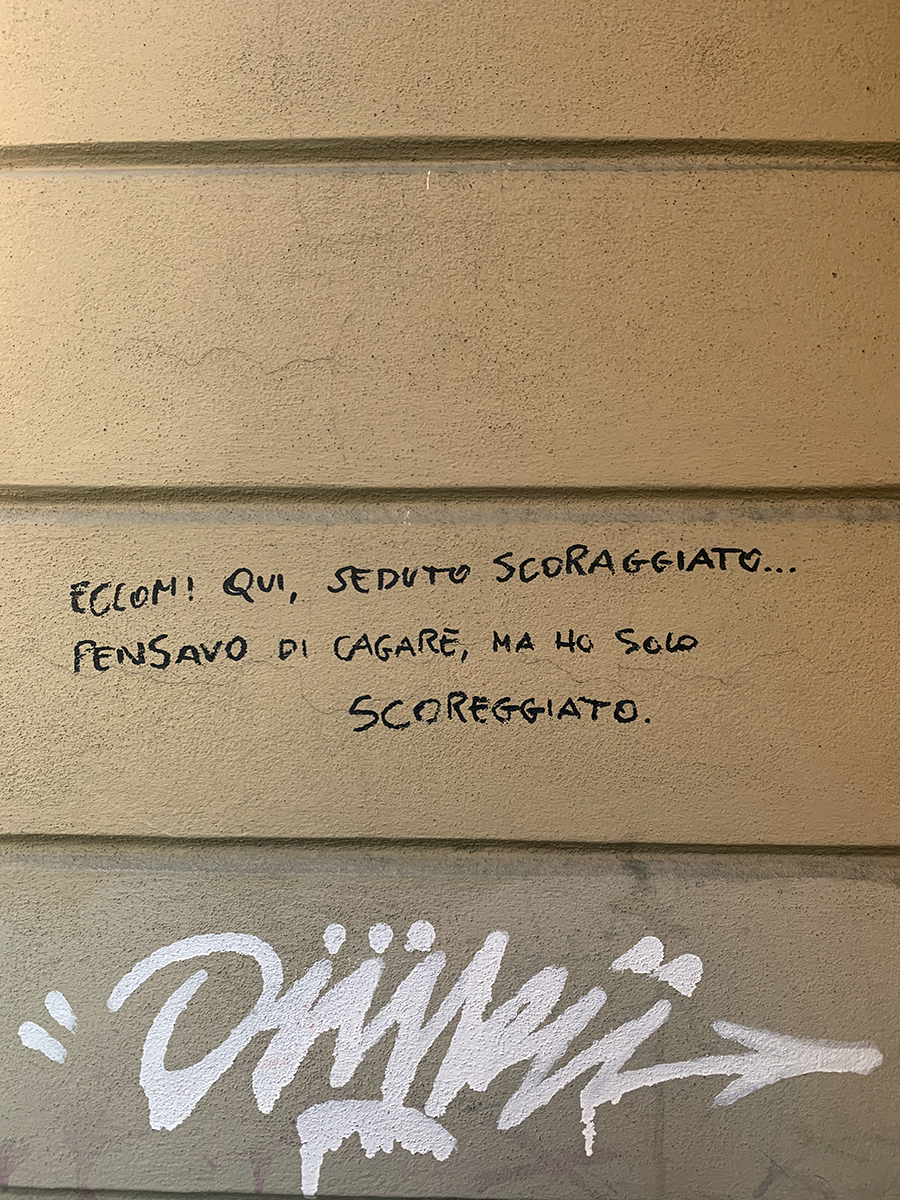 ECCOMI QUI, SEDUTO SCORAGGIATO...
PENSAVO DI CAGARE, MA HO SOLO
SCOREGGIATO.